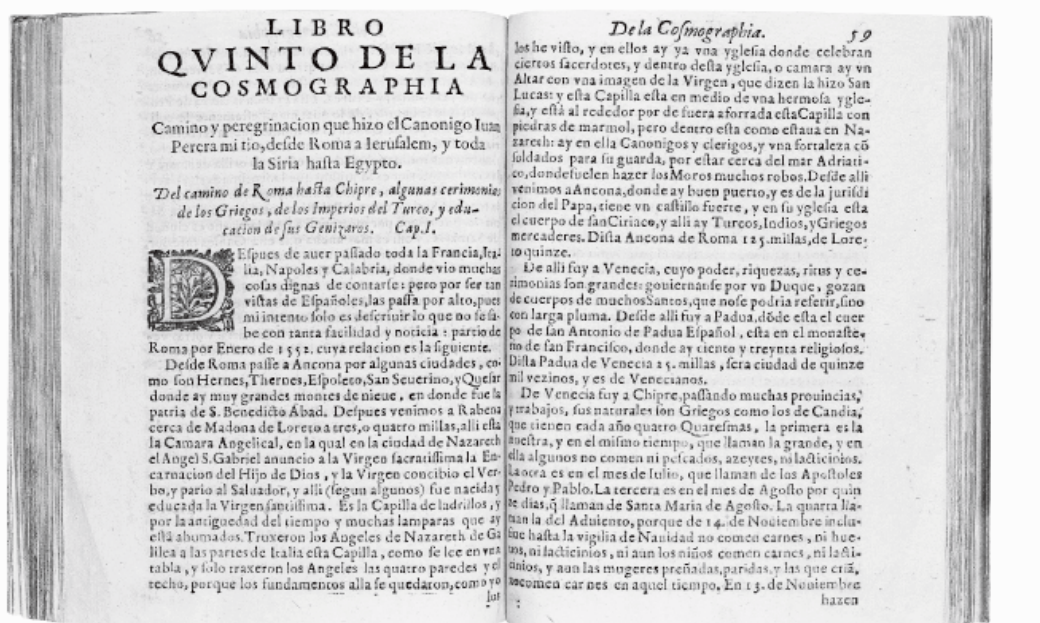 LIBRO
QVINTO DE LA
COSMOGRAPHIA
Camino y peregrinacion que hizo el Canonigo Iuan
Perera mi tio, desde Roma a Ierusalem, y toda
la Siria hasta Egypto.
Del camino de Roma hasta Chipre, algunas cerimonias
de los Griegos, de los Imperios del Turco, y edu-
cacion de sus Genizaros. Cap. I.
DEspues de auer passado toda la Francia, Ita-
lia, Napoles y Calabria, donde vio muchas
cosas dignas de contarse: pero por ser tan
vistas de Españoles, las passa por alto, pues
mi intento solo es descriuir lo que no se sa-
be con tanta facilidad y noticia: partio de
Roma por Enero de 1552. cuya relacion es la siguiente.
Desde Roma passè a Ancona por algunas ciudades, co-
mo son Hernes, Thernes, Espoleto, San Seuerino, y
donde ay muy grandes montes de nieue, en donde fue la
patria de S. Benedicto Abad. Despues venimos a Rabena
cerca de Madona de Loreto a tres, o quatro millas, alli esta
la Camara Angelical, en la qual en la ciudad de Nazareth
el Angel S. Gabriel anuncio a la Virgen sacratissima la En-
carnacion del Hijo de Dios, y la Virgen concibio el Ver-
bo, y pario al Saluador, y alli (segun algunos) fue nacida y
educada la Virgen santissima. Es la Capilla de ladrillos, y
por la antiguedad del tiempo y muchas lamparas que ay
està ahumados. Truxeron los Angeles de Nazareth de Ga
lilea a las partes de Italia esta Capilla, como se lee en vna
tabla, y solo traxeron los Angeles las quatro paredes y el
techo, porque los fundamentos alla se quedaron, como yo
los
De la Cosmographia. 59
los he visto, y en ellos ay ya vna yglesia donde celebran
ciertos sacerdotes, y dentro desta yglesia, o camara ay vn
Altar con vna imagen de la Virgen, que dizen la hizo San
Lucas: y esta Capilla esta en medio de vna hermosa ygle-
sia, y està al rededor por de fuera aforrada esta Capilla con
piedras de marmol, pero dentro esta como estaua en Na-
zareth: ay en ella Canonigos y clerigos, y vna fortaleza cõ
soldados para su guarda, por estar cerca del mar Adriati-
co, donde suelen hazer los Moros muchos robos. Desde alli
venimos a Ancona, donde ay buen puerto, y es de la jurisdi
cion del Papa, tiene vn castillo fuerte, y en su yglesia esta
el cuerpo de san Ciriaco, y alli ay Turcos, Indios, y Griegos
mercaderes. Dista Ancona de Roma 125. millas, de Lore-
to quinze.
De alli fuy a Venecia, cuyo poder, riquezas, ritus y ce-
rimonias son grandes: gouiernanse por vn Duque, gozan
de cuerpos de muchos Santos, que no se podria referir, sino
con larga pluma. Desde alli fuy a Padua, dõde esta el cuer
po de san Antonio de Padua Español, esta en el monaste-
rio de san Francisco, donde ay ciento y treynta religiosos.
Dista Padua de Venecia 25. millas, sera ciudad de quinze
mil vezinos, y es de Venecianos.
De Venecia fuy a Chipre, passando muchas prouincias,
y trabajos, sus naturales son Griegos como los de Candia,
que tienen cada año quatro Quaresmas, la primera es la
nuestra, y en el mismo tiempo, que llaman la grande, y en
ella algunos no comen ni pescados, azeytes, ni lacticinios.
La otra es en el mes de Iulio, que llaman de los Apostoles
Pedro y Pablo. La tercera es en el mes de Agosto por quin
ze dias, q̃ llaman de Santa Maria de Agosto. La quarta lla-
man la del Aduiento, porque de 14. de Nouiembre inclu-
sue hasta la vigilia de Nauidad no comen carnes, ni hue-
uos, ni lacticinios, ni aun los niños comen carnes, ni lacti-
cinios, y aun las mugeres preñadas, paridas, y las que criã,
no comen carnes en aquel tiempo. En 15. de Nouiembre
hazen